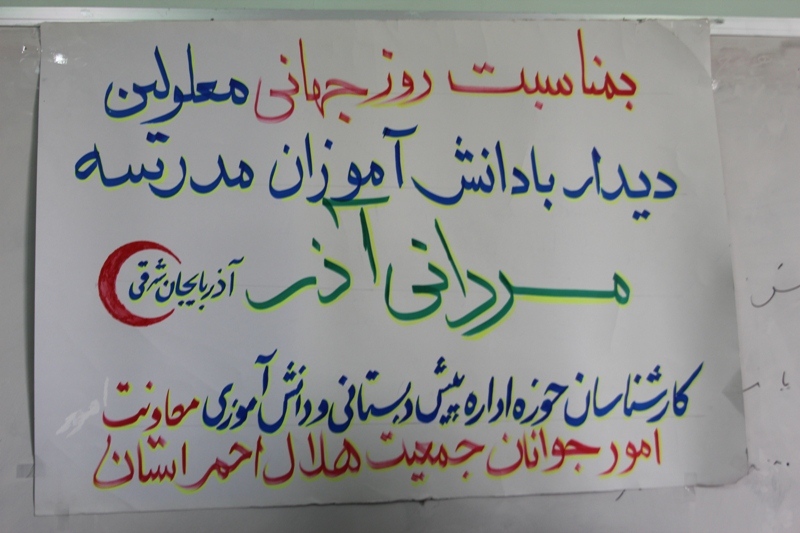 بمناسبت روز جهانی معلولین
دیدار با دانش آموزان مدرسه
مردانی آذر
آذربایجان شرقی
کارشناسان حوزه اداره پیش دبستانی و دانش آموزی معاونت
امور جوانان جمعیت هلال احمر استان